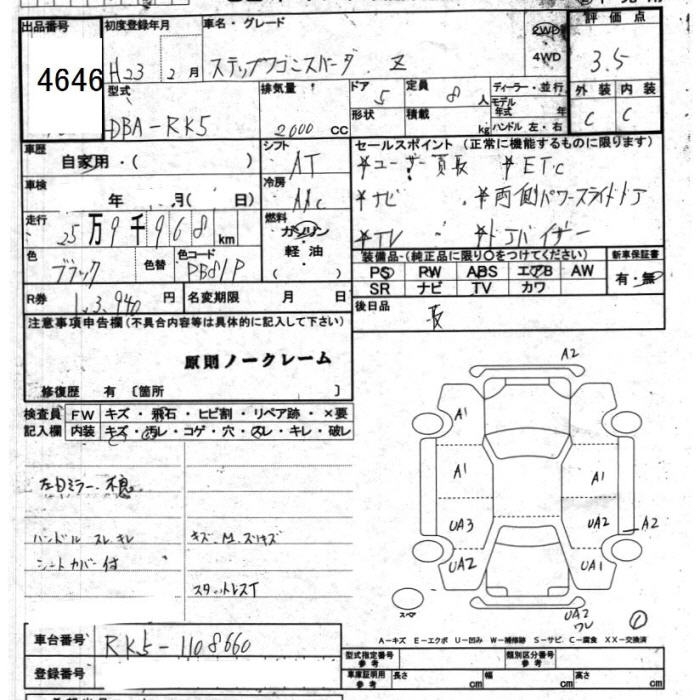 出品番号
4646
初度登録年月
H23 2月
車名・グレード
ステップワゴンスパーダ Z
2WD
4WD
評価点
3.5
型式
DBA-RK5
排気量
2000 cc
ドア
5
形状
定員
8人
積載
kg
ディーラー・並行
モデル年式 年
ハンドル 左・右
外装 内装
C C
車歴
自家用・( )
シフト
AT
セールスポイント (正常に機能するものに限ります)
*ユーザー買取 *ETC
*ナビ *両側パワースライドドア
*TV *ドアバイザー
車検
年 月( 日)
冷房
AAC
走行
25万9千968km
燃料
ガソリン
軽油
( )
色
ブラック
色替
色コード
PB81P
装備品-(純正品に限り○をつけてください)
PS RW ABS エアB AW
SR ナビ TV カワ
新車保証書
有・無
R券
13,940円
名変期限 月 日
後日品
注意事項申告欄(不具合内容等は具体的に記入して下さい)
原則ノークレーム
修復歴 有 〔箇所 〕
検査員記入欄
FW キズ・飛石・ヒビ割・リペア跡・×要
内装 キズ・汚レ・コゲ・穴・スレ・キレ・破レ
左ドミラー不良
ハンドル スレ キレ
シートカバー付
キズ.M.スリキズ
スタットレスT
A2
A1
A1 A1
UA3 UA2 A2
UA2 UA1
スペア
UA2
ワレ
A-キズ E-エクボ U-凹み W-補修跡 S-サビ C-腐食 XX-交換済
車台番号
RK5-1108660
登録番号
型式指定番号
参考
類別区分番号
参考
車庫証明用
参考
長さ cm 幅 cm 高さ cm